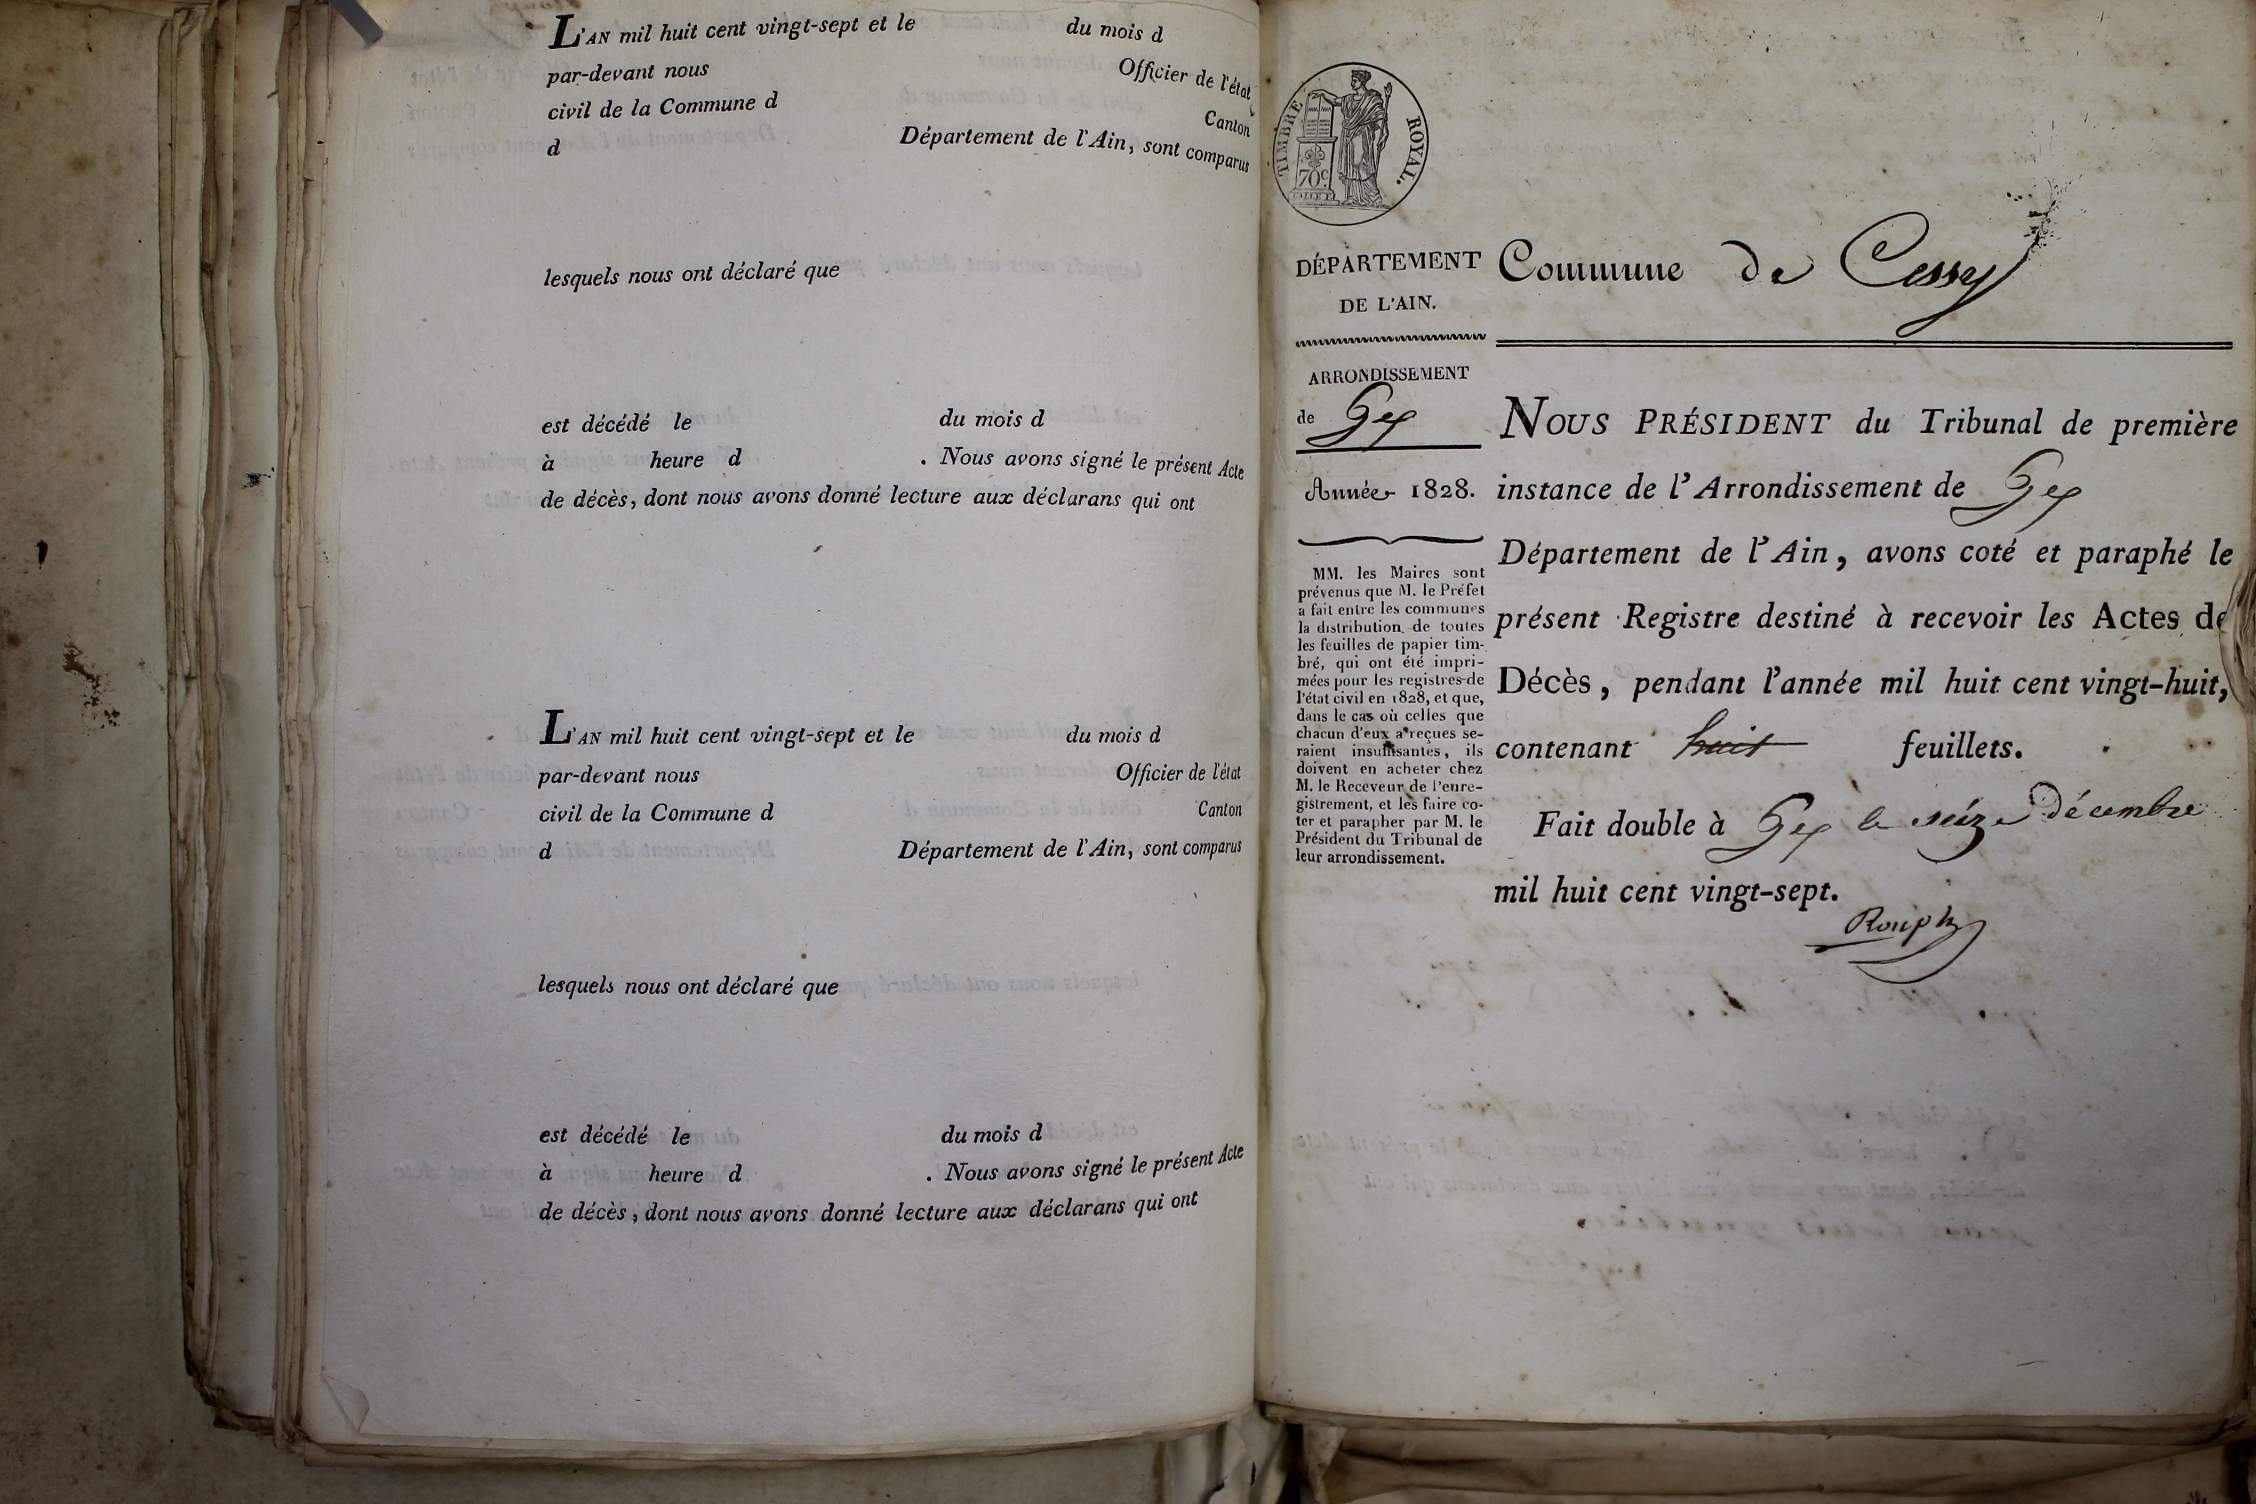 L'AN mil huit cent vingt-sept et le du mois d
par-devant nous Officier de l'état
civil de la Commune d Canton
d Département de l'Ain, sont comparus
lesquels nous ont déclaré que
est décédé le du mois d
à heure d . Nous avons signé le présent Acte
de décès, dont nous avons donné lecture aux déclarans qui ont
L'AN mil huit cent vingt-sept et le du mois d
par-devant nous Officier de l'état
civil de la Commune d Canton
d Département de l'Ain, sont comparus
lesquels nous ont déclaré que
est décédé le du mois d
à heure d . Nous avons signé le présent Acte
de décès, dont nous avons donné lecture aux déclarans qui ont
TIMBRE ROYAL.
70c
DÉPARTEMENT
DE L'AIN.
ARRONDISSEMENT
de Gex
Année 1828.
MM. les Maires sont
prévenus que M. le Préfet
a fait entre les communes
la distribution de toutes
les feuilles de papier tim-
bré, qui ont été impri-
mées pour les registres de
l'état civil en 1828, et que,
dans le cas où celles que
chacun d'eux a reçues se-
raient insuffisantes, ils
doivent en acheter chez
M. le Receveur de l'enre-
gistrement, et les faire co-
ter et parapher par M. le
Président du Tribunal de
leur arrondissement.
Commune de Cessy
NOUS PRÉSIDENT du Tribunal de première
instance de l'Arrondissement de Gex
Département de l'Ain, avons coté et paraphé le
présent Registre destiné à recevoir les Actes de
Décès, pendant l'année mil huit cent vingt-huit,
contenant huit feuillets.
Fait double à Gex le seize décembre
mil huit cent vingt-sept.